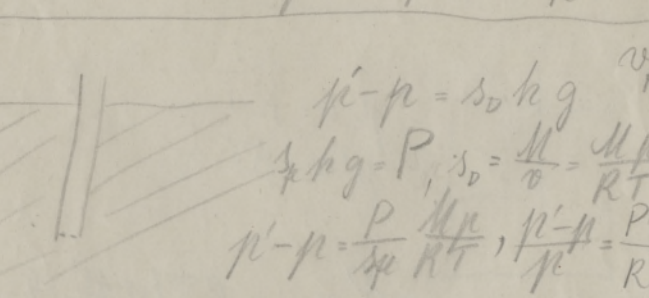 p′-p = s₀ h g
h g = P, s₀ = M/v = Mp/RT
p′-p = P/sμ Mp/RT, p′-p/p = P/R